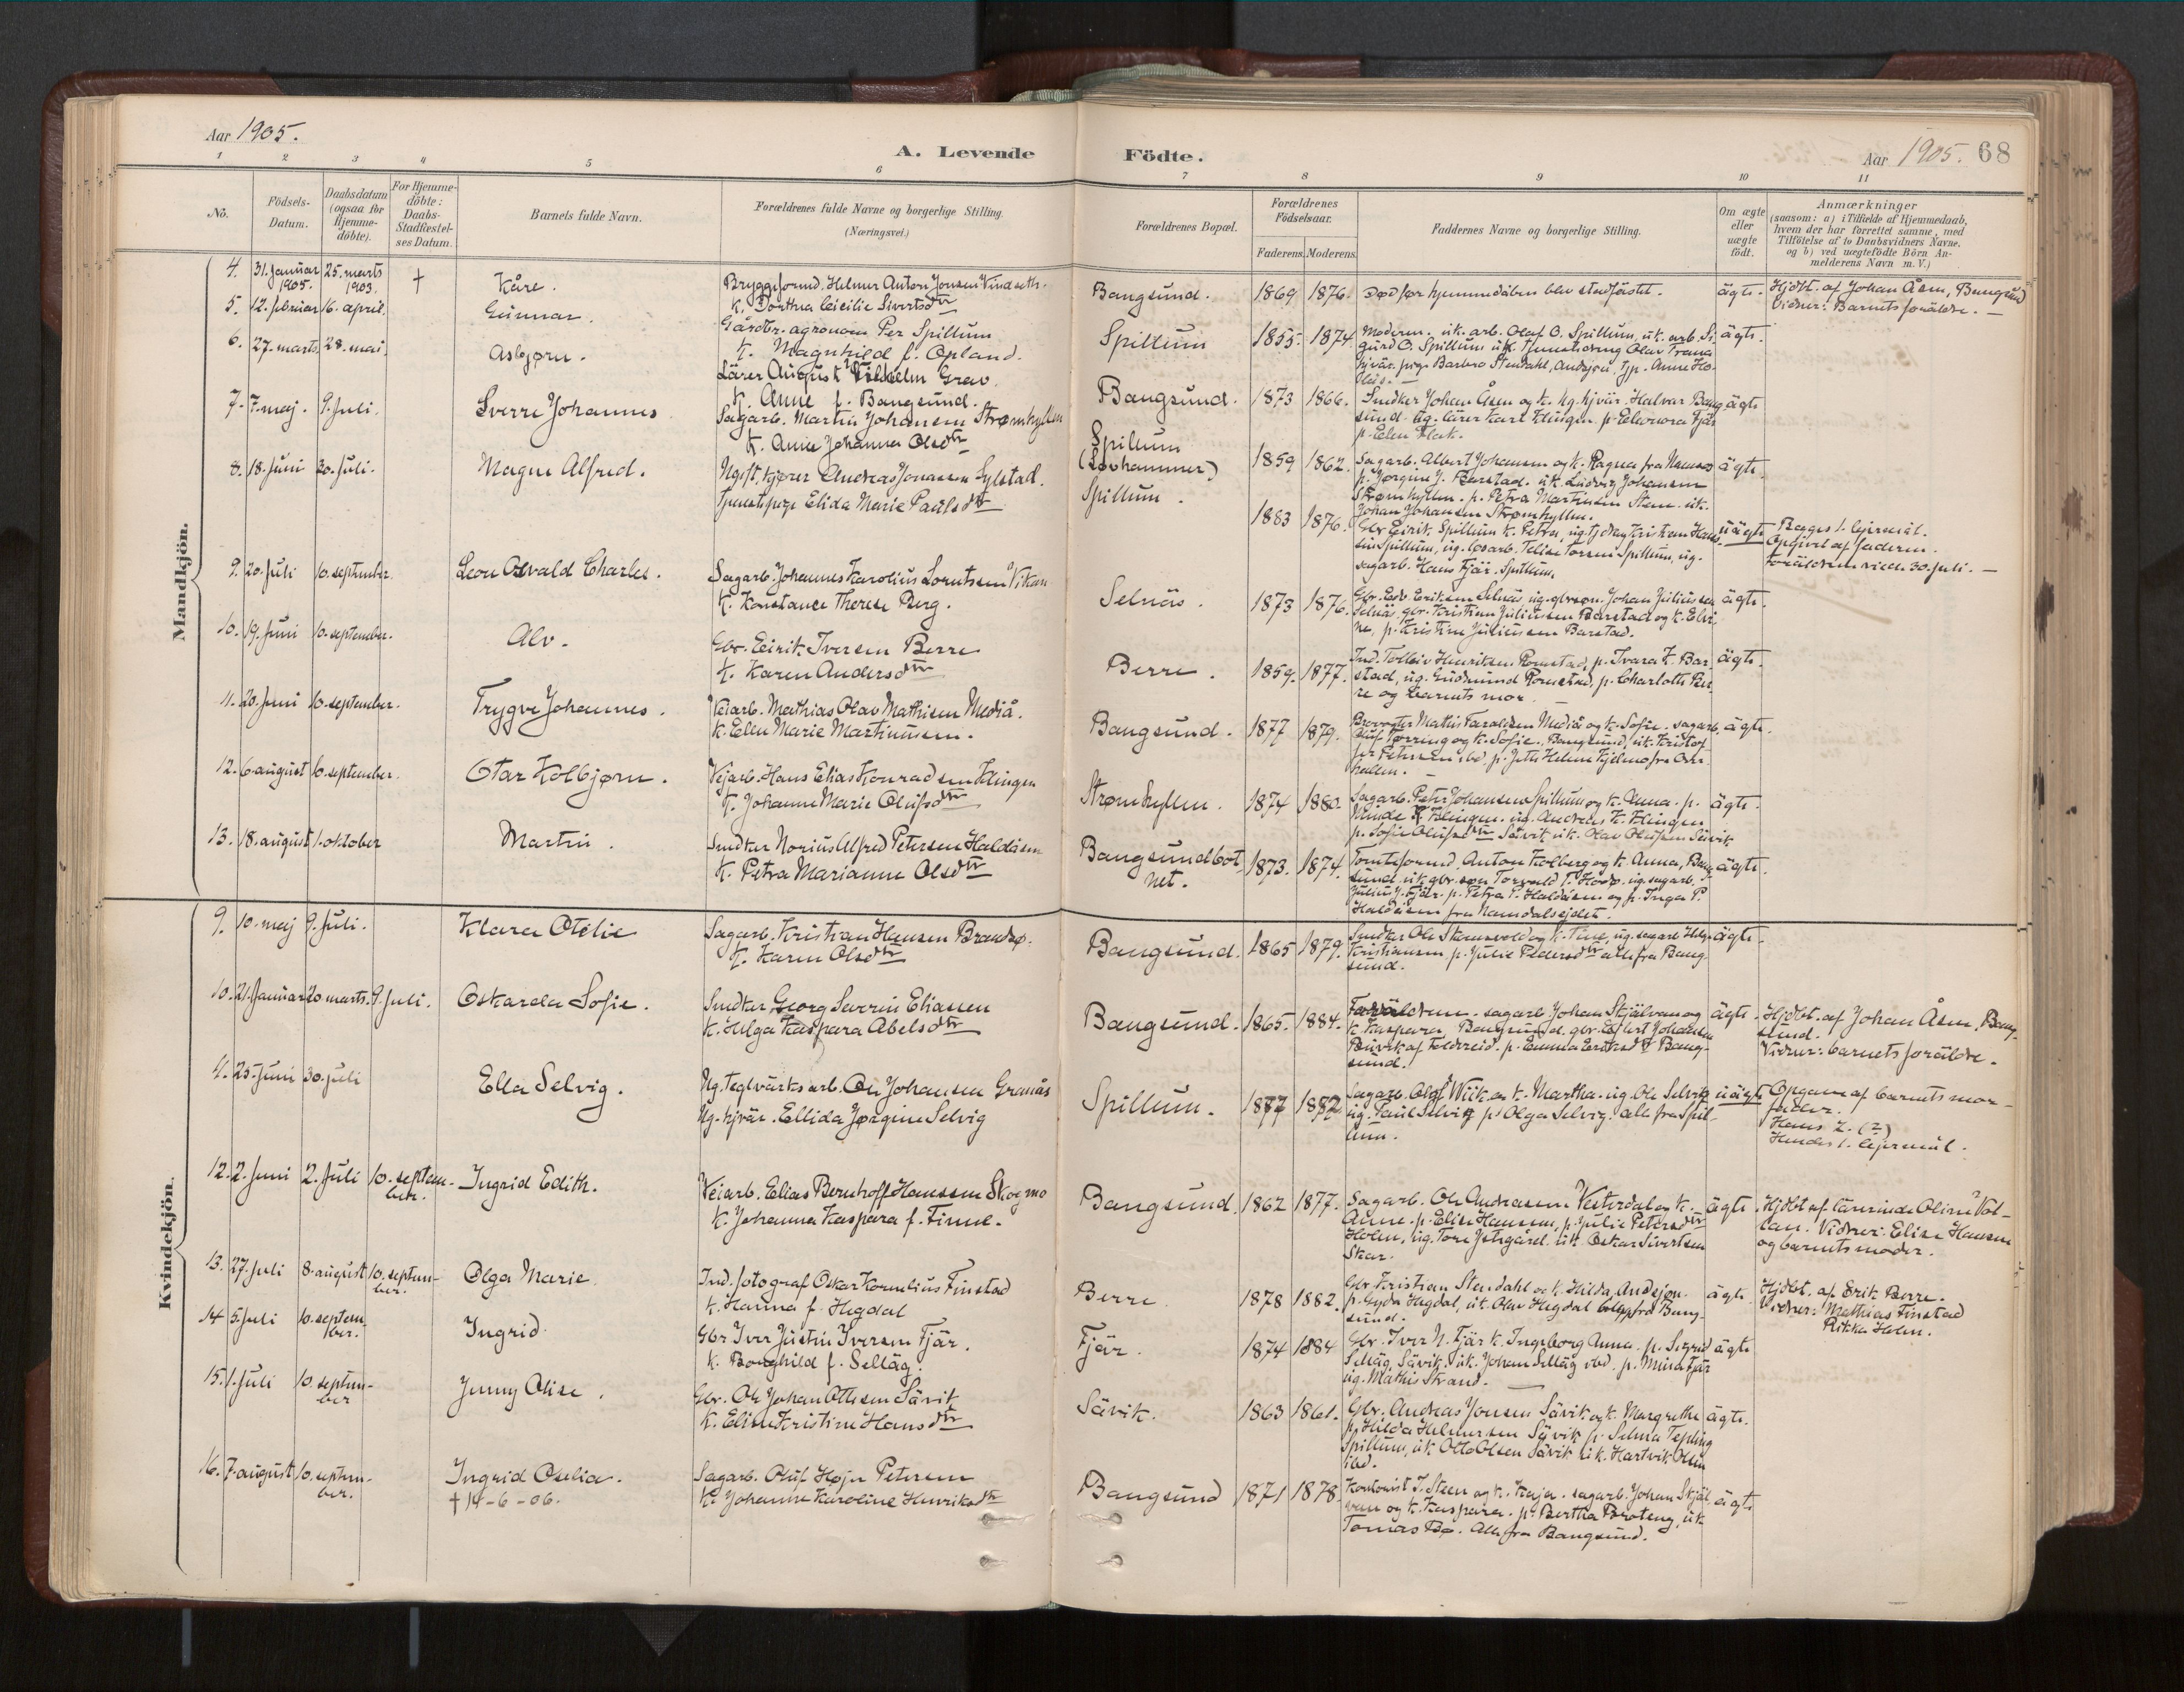 Aar 1905.
A. Levende Födte.
Aar 1905. 68
1 2 3 4 5 6 7 8 9 10 11
No.
Födsels-Datum.
Daabsdatum (ogsaa for Hjemme-döbte).
For Hjemme-döbte: Daabs-Stadfæstel-ses Datum.
Barnets fulde Navn.
Forældrenes fulde Navne og borgerlige Stilling.
(Næringsvei.)
Forældrenes Bopæl.
Forældrenes Födselsaar.
Faderens. Moderens.
Faddernes Navne og borgerlige Stilling.
Om ægte eller uægte födt.
Anmærkninger
(saasom: a) i Tilfælde af Hjemmedaab,
hvem der har forrettet samme, med
Tilföielse af to Daabsvidners Navne.
og b) ved uægtefödte Börn An-
melderens Navn m. V.)
Mandkjön.
4. 31. januar 1905. 25. marts 1903. † Kåre.
Bryggeformd. Helmer Anton Jonsen Vindseth.
k. Dorthea Cecilie Sivertsdtr
Bangsund. 1869 1876. Død før hjemmedåben blev stadfästet. ägte.
Hjdbt. af Johan Åsen, Bangsund
Vidner: Barnets foräldre. —
5. 12. februar 16. april. Gunnar.
Gårdbr. agronom Per Spillum
k. Magnhild f. Opland.
Spillum 1855. 1874. Moderen. uk. arb. Olaf O. Spillum, uk. arb. Si-
gurd O. Spillum uk. tjenestedreng Olav Trana
hjvär. pige Barbro Stendahl, Andsjøn, tjp. Anne Ho-
ägte.
6. 27. marts. 28. mai. Asbjørn.
Lärer August Vilhelm Grav.
k. Anne f. Bangsund.
Bangsund. 1873 1866. Snedker Johan Åsen og k. hg. hjvär. Halvar Bang-
sund. ug. lärer Karl Klingen. p. Eleonora Fjär
p. Elen Flak.
ägte
7. 7. maj. 9. juli. Sverre Johannes
Sagarb. Martin Johansen Strømhyllen
k. Anne Johanna Olsdtr
Spillum
(Lovhammer) 1859 1862. Sagarb. Albert Johansen og k. Ragna fra Namsos
p. Jørgine J. Barstad. uk. Ludvig Johansen
Strømhyllen. p. Petra Martinsen Steen. uk.
Johan Johansen Strømhyllen.
ägte.
8. 18. juni 30. juli. Magne Alfred.
Ugift. kjører Andreas Jonassen Sylstad.
tjenestepige Elida Marie Paulsdtr
Spillum. 1883 1876. Gbr Eirik Spillum k. Petra, ug. tjdreng Kristian Han-
sen Spillum, ug. løsarb. Telise Torsen Spillum, ug.
sagarb. Hans Fjär. Spillum.
uägte
Begges 1. lejermål.
Opgivet af faderen.
Foräldrene viede 30. juli. —
9. 20. juli 10. september. Leon Osvald Charles.
Sagarb. Johannes Karolius Lorntsen Vikan
k. Konstance Therese Berg.
Selnäs. 1873 1876. Gbr. Edv. Eriksen Selnäs ug. gbrsøn. Johan Juliussen
Selnäs, gbr. Kristian Juliussen Barstad og k. Elvi-
ne, p. Kristine Juliussen Barstad.
ägte.
10. 19. juni 10. september. Alv.
Gbr. Eirik Iversen Berre
k. Karen Andersdtr
Berre. 1859. 1877. Ind. Tollev Henriksen Romstad, p. Ivara K. Bar-
stad, ug. Gudmund Romstad, p. Charlotte Ber-
re og barnets mor.
ägte.
11. 20. juni 10. september. Trygve Johannes.
Veiarb. Mathias Olav Mathisen Mediå.
k. Elen Marie Martinussen.
Bangsund. 1877 1879. Brovogter Mathis Faraldsen Mediå og k. Sofie. sagarb.
Oluf Tørring og k. Sofie. Bangsund, uk. Kristof-
fer Petersen ibd, p. Jette Helene Fjeldmo fra Over-
hallen.
ägte.
12. 6. august 10. september. Otar Kolbjørn.
Vejarb. Hans Elias Konradsen Klingen
k. Johanne Marie Olufsdtr
Strømhyllen. 1874 1880. Sagarb. Peter Johansen Spillum og k. Anna. p.
Minda K. Klingen. ug. Andreas K. Klingen
p. Sofie Olufsdtr Sävik, uk. Olav Olufsen Sävik
ägte.
13. 18. august 1. oktober Martin.
Snedker Norius Alfred Petersen Haldåsen
k. Petra Marianne Olsdtr
Bangsundbot-
net. 1873. 1874. Tomteformd Anton Kolberg og k. Anna, Bang-
sund. uk. gbr. søn Torvald T. Hodø. ug. sagarb.
Julius J. Fjär. p. Petra P. Haldåsen og p. Inga P.
Haldåsen fra Namdalsejdet.
ägte.
Kvindekjön.
9. 10. maj 9. juli. Klara Otelie
Sagarb. Kristian Hansen Brandsø.
k. Karen Olsdtr
Bangsund. 1865 1879. Snedker Ole Skomsvold og k. Tine, ug. sagarb. Helge
Kristiansen, p. Julie Pedersdtr alle fra Bang-
sund.
ägte.
10. 21. januar 20 marts. 9. juli. Oskarda Sofie.
Snedker Georg Severin Eliassen
k. Helga Kaspara Abelsdtr
Bangsund. 1865. 1884. Foräldrene. sagarb Johan Skjälvan og
k. Kaspara, Bangsund. gbr. Eilert Johansen
Buvik af Foldereid. p. Emma Eriksdtr Bang-
sund.
ägte.
Hjdbt. af Johan Åsen, Bang-
sund.
Vidner: barnets foräldre.
11. 25. juni 30. juli Ella Selvig.
Ug. Teglvärksarb. Ole Johansen Granås
Ug. hjvär. Ellida Jørgine Selvig
Spillum. 1877 1882 Sagarb. Olaf Wiik og k. Martha. ug. Ole Selvig
ug. Paul Selvig p. Olga Selvig. alle fra Spil-
lum.
uägte
Opgave af barnets mor-
fader.
Hans 2. (?)
Hendes 1. lejermål.
12. 2. juni 2. juli 10. septem-
ber. Ingrid Edith.
Veiarb. Elias Bernhoff Hanssen Skogmo
k. Johanna Kaspara f. Finne.
Bangsund. 1862 1877. Sagarb. Ole Andreasen Vesterdal og k.
Anne. p. Elise Hanssen, p. Julie Petersdtr
Holm, ug. Tore Ystgård. uk. Oskar Sivertsen
Skar.
ägte.
Hjdbt af lärerinde Oline Vol-
lan. Vidner: Elise Hansen
og barnets moder.
13. 27. juli 8. august 10. septem-
ber. Olga Marie.
Ind. fotograf Oskar Kornelius Finstad
k. Hanna f. Hegdal
Berre. 1878 1882. Gbr. Kristian Stendahl og k. Hilda, Andsjøn.
p. Gyda Hegdal, uk. Olav Hegdal begge fra Bang-
sund.
ägte.
Hjdbt. af Erik Berre.
Vidner: Mathias Finstad
Rikka Holm.
14 5. juli 10. septem-
ber. Ingrid.
Gbr Iver Justin Iversen Fjär.
k. Borghild f. Selläg.
Fjär. 1874 1884 Gbr. Iver N. Fjär k. Ingeborg Anna. p. Sigrid
Selläg, Sävik. uk. Johan Selläg ibd. p. Mina Fjär
ug. Mathis Strand.
ägte
15. 1. juli 10. septem-
ber Jenny Olise.
Gbr. Ole Johan Ottesen Sävik
k. Elen Kristine Hansdtr
Sävik. 1863 1861. Gbr. Andreas Jonsen Sävik og k. Margrethe
p. Hilda Helmersen Sävik p. Selma Tepling
Spillum, uk Otto Olsen Sävik uk. Hartvik Olsen
ibd.
ägte.
16. 7. august 10. septem-
ber. Ingrid Oselia.
† 14-6-06.
Sagarb. Oluf Højn Petersen
k. Johanne Karoline Henriksdtr
Bangsund 1871 1878. Kontorist J. Steen og k. Kaja. sagarb. Johan Skjäl-
van og k. Kaspara. p. Bertha Broteng, uk
Tomas Bø. Alle fra Bangsund.
ägte